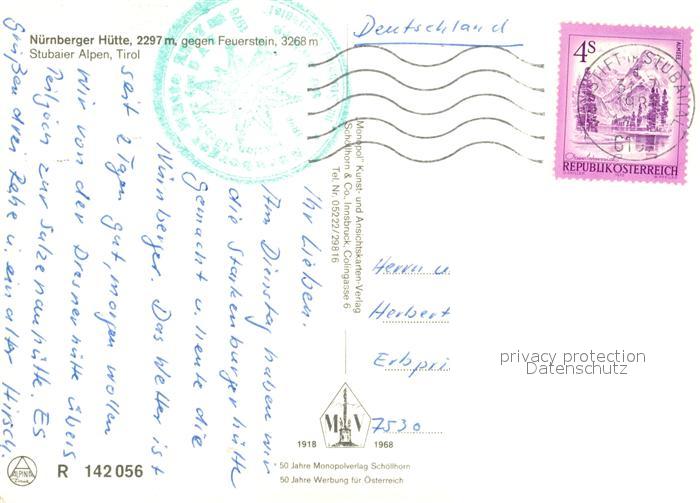 Nürnberger Hütte, 2297 m, gegen Feuerstein, 3268 m
Stubaier Alpen, Tirol
Ihr Lieben.
Am Dienstag haben wir
die Starkenburgerhütte
gemacht u. heute die
Nürnberger. Das Wetter ist
seit 2 Tgen gut, morgen wollen
wir von der Dresnerhütte übers
Peiljoch zur Sulzenauhütte. Es
grüßen drei Rehe u. ein alter Hirsch.
R 142 056
ALPINE
Monopol" Kunst- und Ansichtskarten-Verlag
(Schöllhorn & Co., Innsbruck, Colingasse 6
Tel. Nr. 05222/29816
M V
1918 1968
50 Jahre Monopolverlag Schöllhorn
50 Jahre Werbung für Österreich
Deutschland
4 S
ALMSEE
REPUBLIK ÖSTERREICH
STUBAITAL
Herrn u.
Herbert
Erbpri
7530
privacy protection
Datenschutz